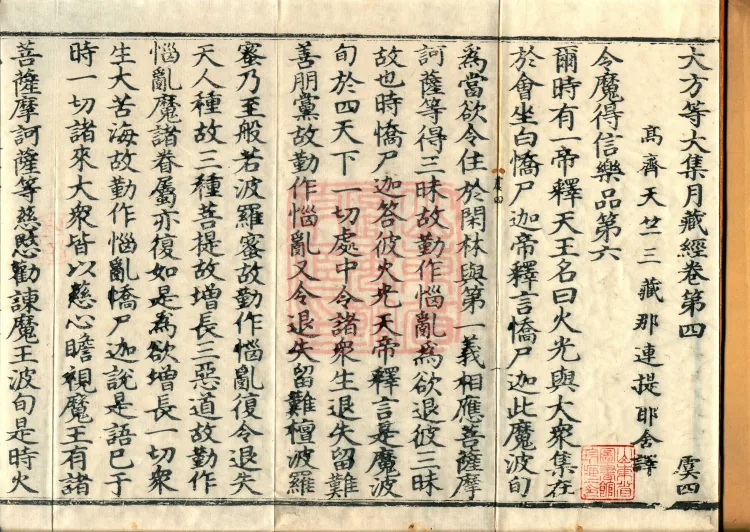 大方等大集月藏經卷第四 虞四
高齊天竺三藏那連提耶舍譯
令魔得信樂品第六
爾時有一帝釋天王名曰火光與大眾集在
於會坐白憍尸迦帝釋言憍尸迦此魔波旬
虞四
為當欲令住於閑林與第一義相應菩薩摩
訶薩等得三昧故勤作惱亂為欲退彼三昧
故也時憍尸迦答彼火光天帝釋言是魔波
旬於四天下一切處中令諸眾生退失留難
善朋黨故勤作惱亂又令退失留難檀波羅
蜜乃至般若波羅蜜故勤作惱亂復令退失
天人種故三種菩提故增長三惡道故勤作
惱亂魔諸眷屬亦復如是為欲增長一切眾
生大苦海故勤作惱亂憍尸迦說是語已于
時一切諸來大眾皆以慈心瞻視魔王有諸
菩薩摩訶薩等慈愍勸諫魔王波旬是時火
山東省
圖書館